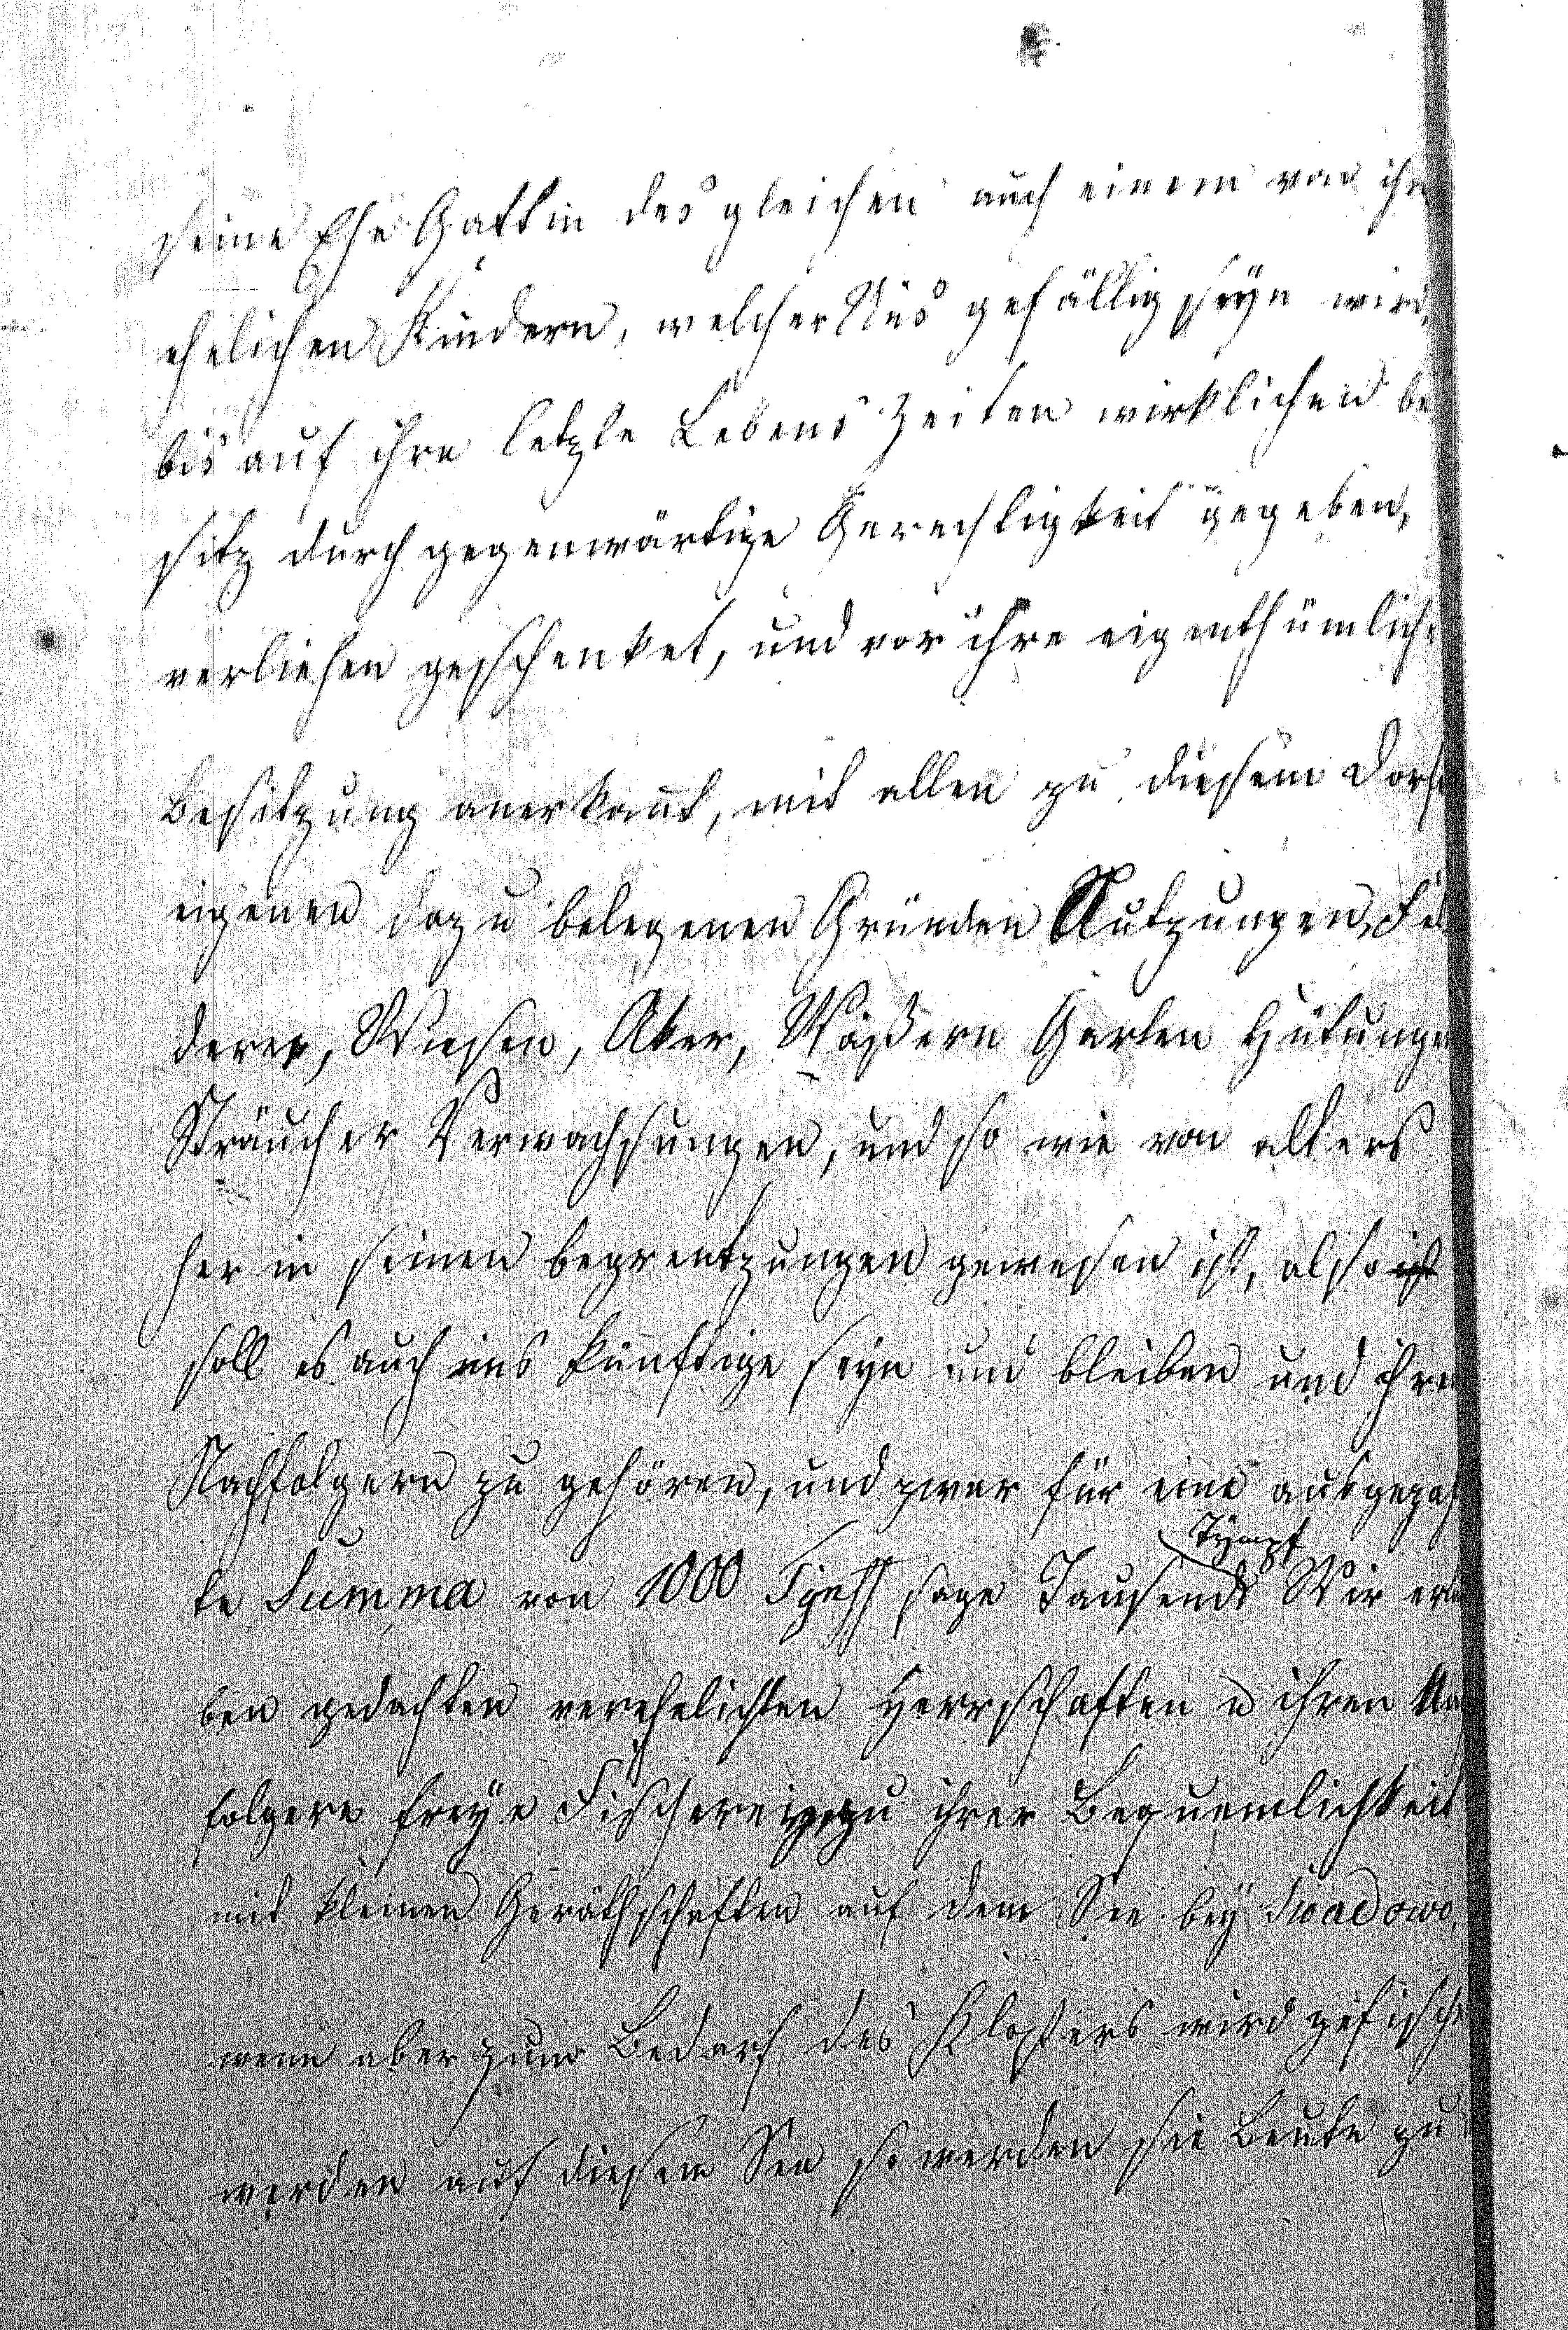 seine Ehe Gattin des gleichen auch einem von ihr
ehelichen Kindern, welcher Uns gefällig seyn wird,
bis auf ihre letzte Lebens Zeiten wirklichen be
sitz durch gegenwärtige Gerechtigkeit gegeben,
verliehen geschenket, und vor ihre eigenthümliche
Besitzung anerkannt, mit allen zu diesem Dorfe
eigenen dazu belegenen Gründen Nutzungen, Fel
derer, Wiesen, Aker, Wäßern Garten Hütungen
Sträucher Verwachsungen, und so wie von alters
her in seinen begrentzungen gewesen ist, also ist
soll es auch ins künftige seyn und bleiben und ihren
Nachfolgern zu gehören, und zwar für eine ausgezah
te Summa von 1000 sage Tausend Tympf Wir erlau
ben gedachten verehelichten Herrschaften u ihren Na
folgern freye Fischerei zu ihrer Bequemlichkeit
mit kleinen Geräthschaften auf dem See bey Swadowo,
wenn aber zum Bedarf des Klosters wird gefischt
werden auf diesem See so werden sie Leute zu